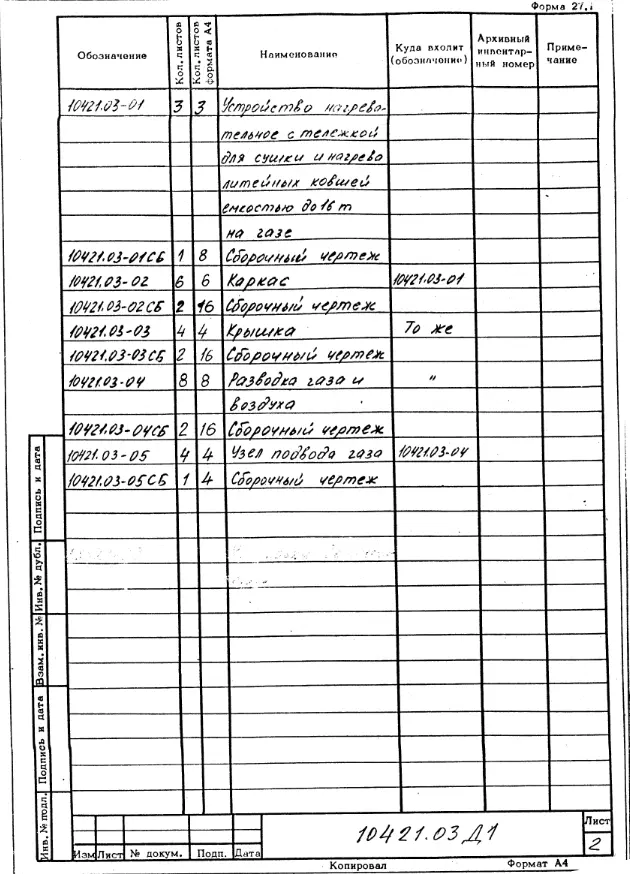 Форма 27.1
Обозначение | Кол. листов | Кол. листов формата А4 | Наименование | Куда входит (обозначение) | Архивный инвентар-ный номер | Приме-чание
10421.03-01 | 3 | 3 | Устройство нагрева-
тельное с тележкой
для сушки и нагрева
литейных ковшей
емкостью до 16 т
на газе
10421.03-01СБ | 1 | 8 | Сборочный чертеж
10421.03-02 | 6 | 6 | Каркас | 10421.03-01
10421.03-02СБ | 2 | 16 | Сборочный чертеж
10421.03-03 | 4 | 4 | Крышка | То же
10421.03-03СБ | 2 | 16 | Сборочный чертеж
10421.03-04 | 8 | 8 | Разводка газа и | "
воздуха
10421.03-04СБ | 2 | 16 | Сборочный чертеж
10421.03-05 | 4 | 4 | Узел подвода газа | 10421.03-04
10421.03-05СБ | 1 | 4 | Сборочный чертеж
Подпись и дата
Инв. № дубл.
Взам. инв. №
Подпись и дата
Инв. № подл.
Изм Лист № докум. Подп. Дата
10421.03 Д1
Лист
2
Копировал
Формат А4